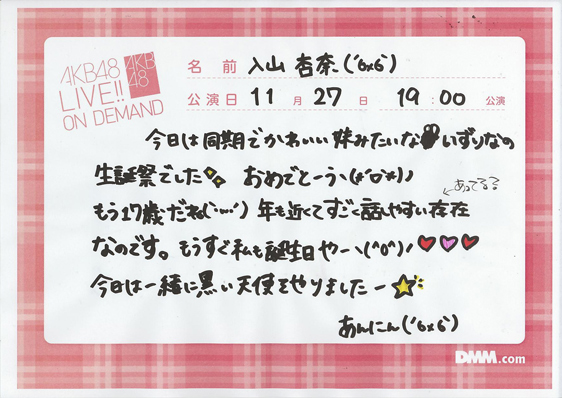 AKB48
LIVE!!
ON DEMAND
AKB
48
名 前 入山 杏奈('6x6')
公演日 11 月 27 日 19 : 00 公演
今日は同期でかわいい妹みたいな いずりなの
生誕祭でした おめでとーう\(*'▽'*)ノ
←あってる?
もう17歳だね(´・・・`) 年も近くてすごく話しやすい存在
なのです。もうすぐ私も誕生日やー\(^o^)/♥♥♥
今日は一緒に黒い天使をやりましたー☆
あんにん('6x6')
DMM.com